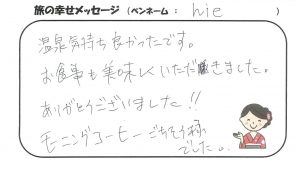 旅の幸せメッセージ（ペンネーム： hie ）
温泉気持ち良かったです。
お食事も美味しくいただきました。
ありがとうございました!!
モーニングコーヒーごちそう様
でした。